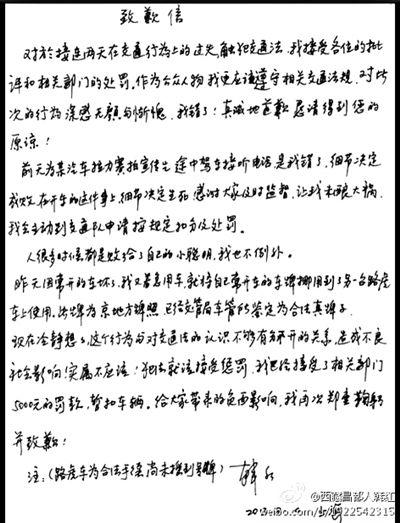 致歉信
对于接连两天在交通行为上的过失,触犯交通法,我接受各位的批
评和相关部门的处罚。作为公众人物我更应该遵守相关交通法规,对此
次的行为深感无颜与惭愧。我错了!真诚地道歉 恳请得到您的
原谅!
前天为某汽车接力赛拍宣传片途中驾车接听电话是我错了,细节决定
成败,在开车的这件事上细节决定生死 感谢大家及时监督,让我未酿大祸,
我会主动到交通队申请按规定扣分及处罚。
人很多时候都是败给了自己的小聪明,我也不例外。
昨天因常开的车坏了,我又着急用车,就将自己常开车的车牌挪用到了另一台路虎
车上使用,此牌为京地方牌照,已经交管局车管所鉴定为合法真牌子。
现在冷静想想,这个行为与对交通法的认识不够有分不开的关系,造成不良
社会影响!实属不应该!犯法就该接受惩罚,我已经接受了相关部门
5000元的罚款,暂扣车辆。给大家带来的负面影响,我再次郑重鞠躬
并致歉!
注:(路虎车为合法手续尚未换到号牌) 韩红
2013
@西藏昌都人韩红
weibo.com/u/1922542315